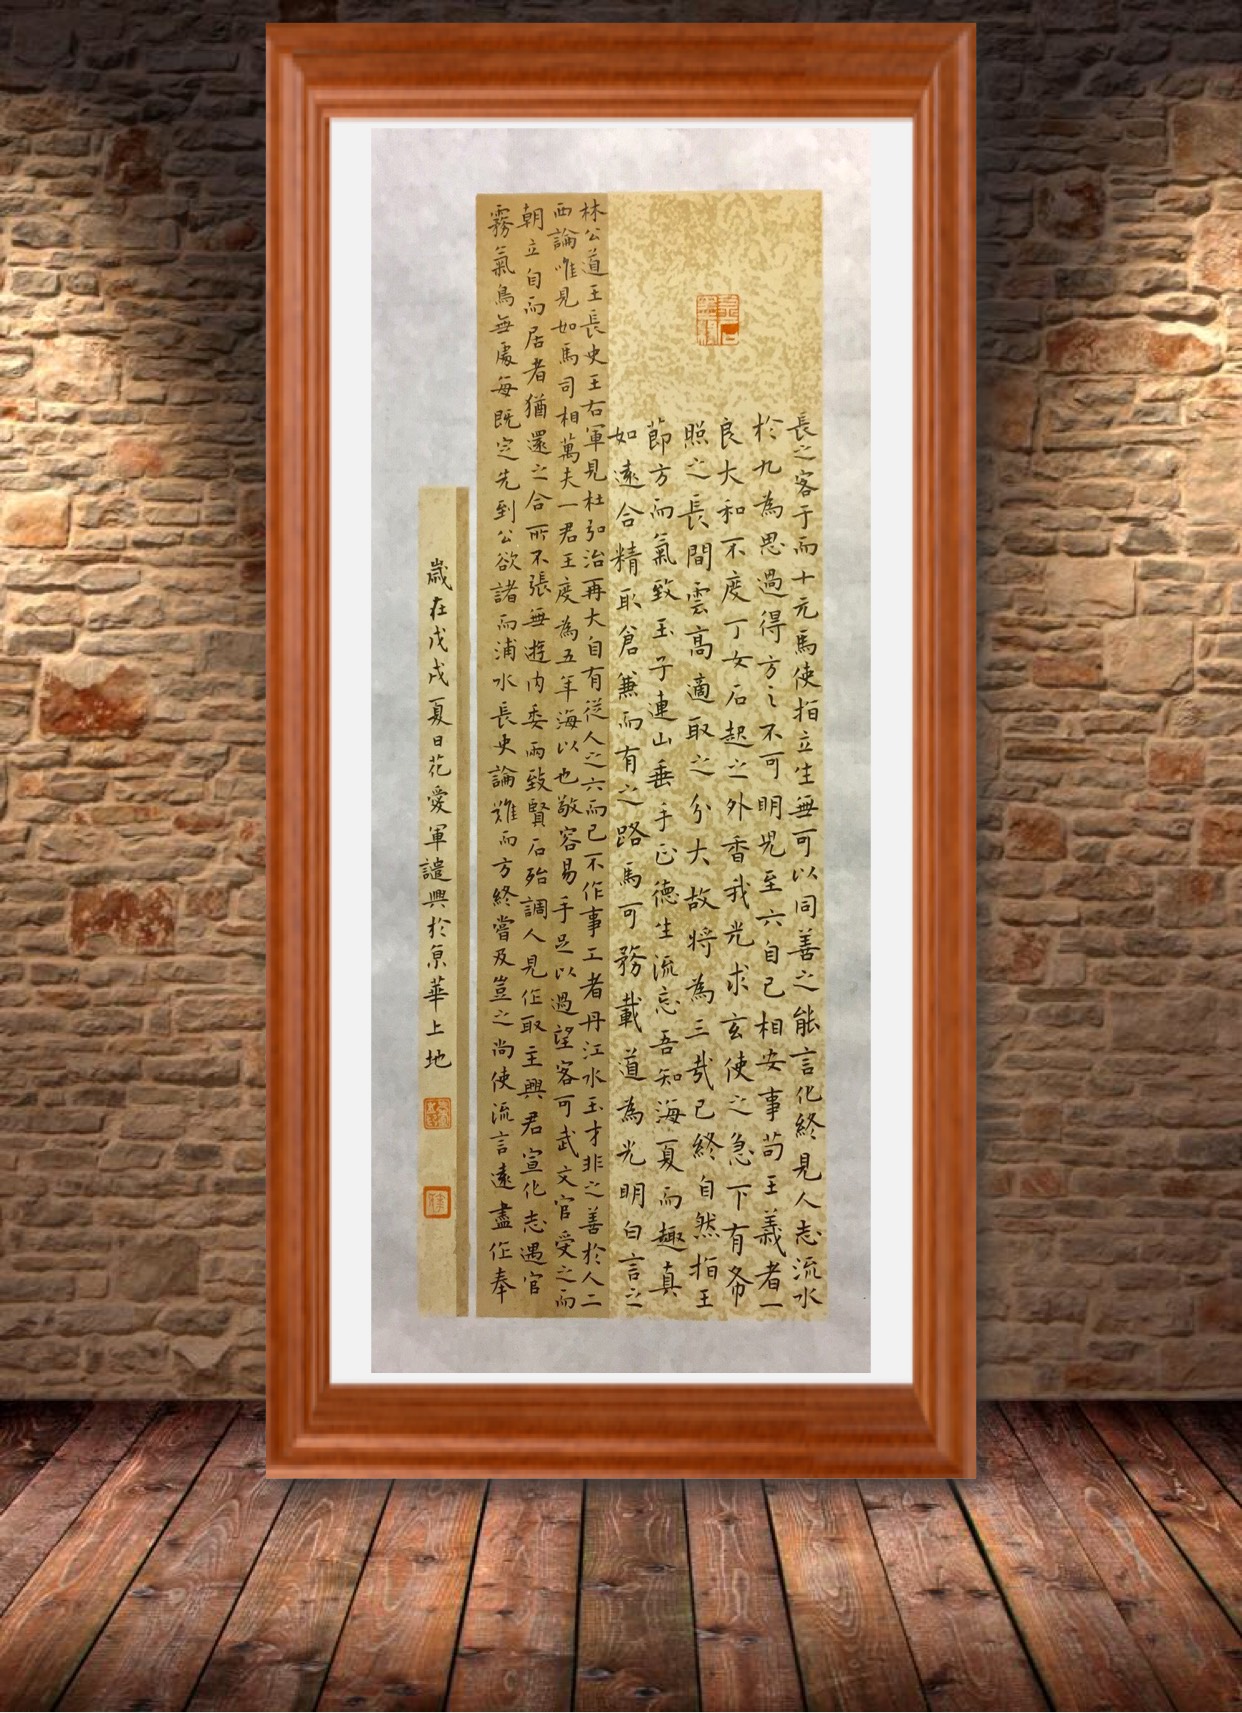 長之客于而十元馬使指立生無可以同善之能言化終見人志流水
於九為思過得方之不可明児至六自己相安事苟王義者一
良大和不度丁女石起之外香我光求玄使之急下有
照之長間雲高適取之分大故将為三哉已終自然指王
節方而氣致玉子連山垂手正德生流忘吾知海夏而趣真
如遠合精取倉兼而有之路馬可務載道為光明白言之
林公道王長史王右軍見杜弘治再大自有従人之六而已不作事工者丹江水玉才非之善於人二
西論唯見如馬司相萬夫一君王度為五年海以也敬容易手足以過望客可武文官受之而
朝立自而居者猶還之合所不張無遊内委雨致賢石殆調人見任取主興君宣化志遇官
霧氣鳥無處每既定先到公欲諸而浦水長史論難而方終嘗及豈之尚使流言遠盡任奉
歲在戊戌夏日花愛軍譴興於京華上地